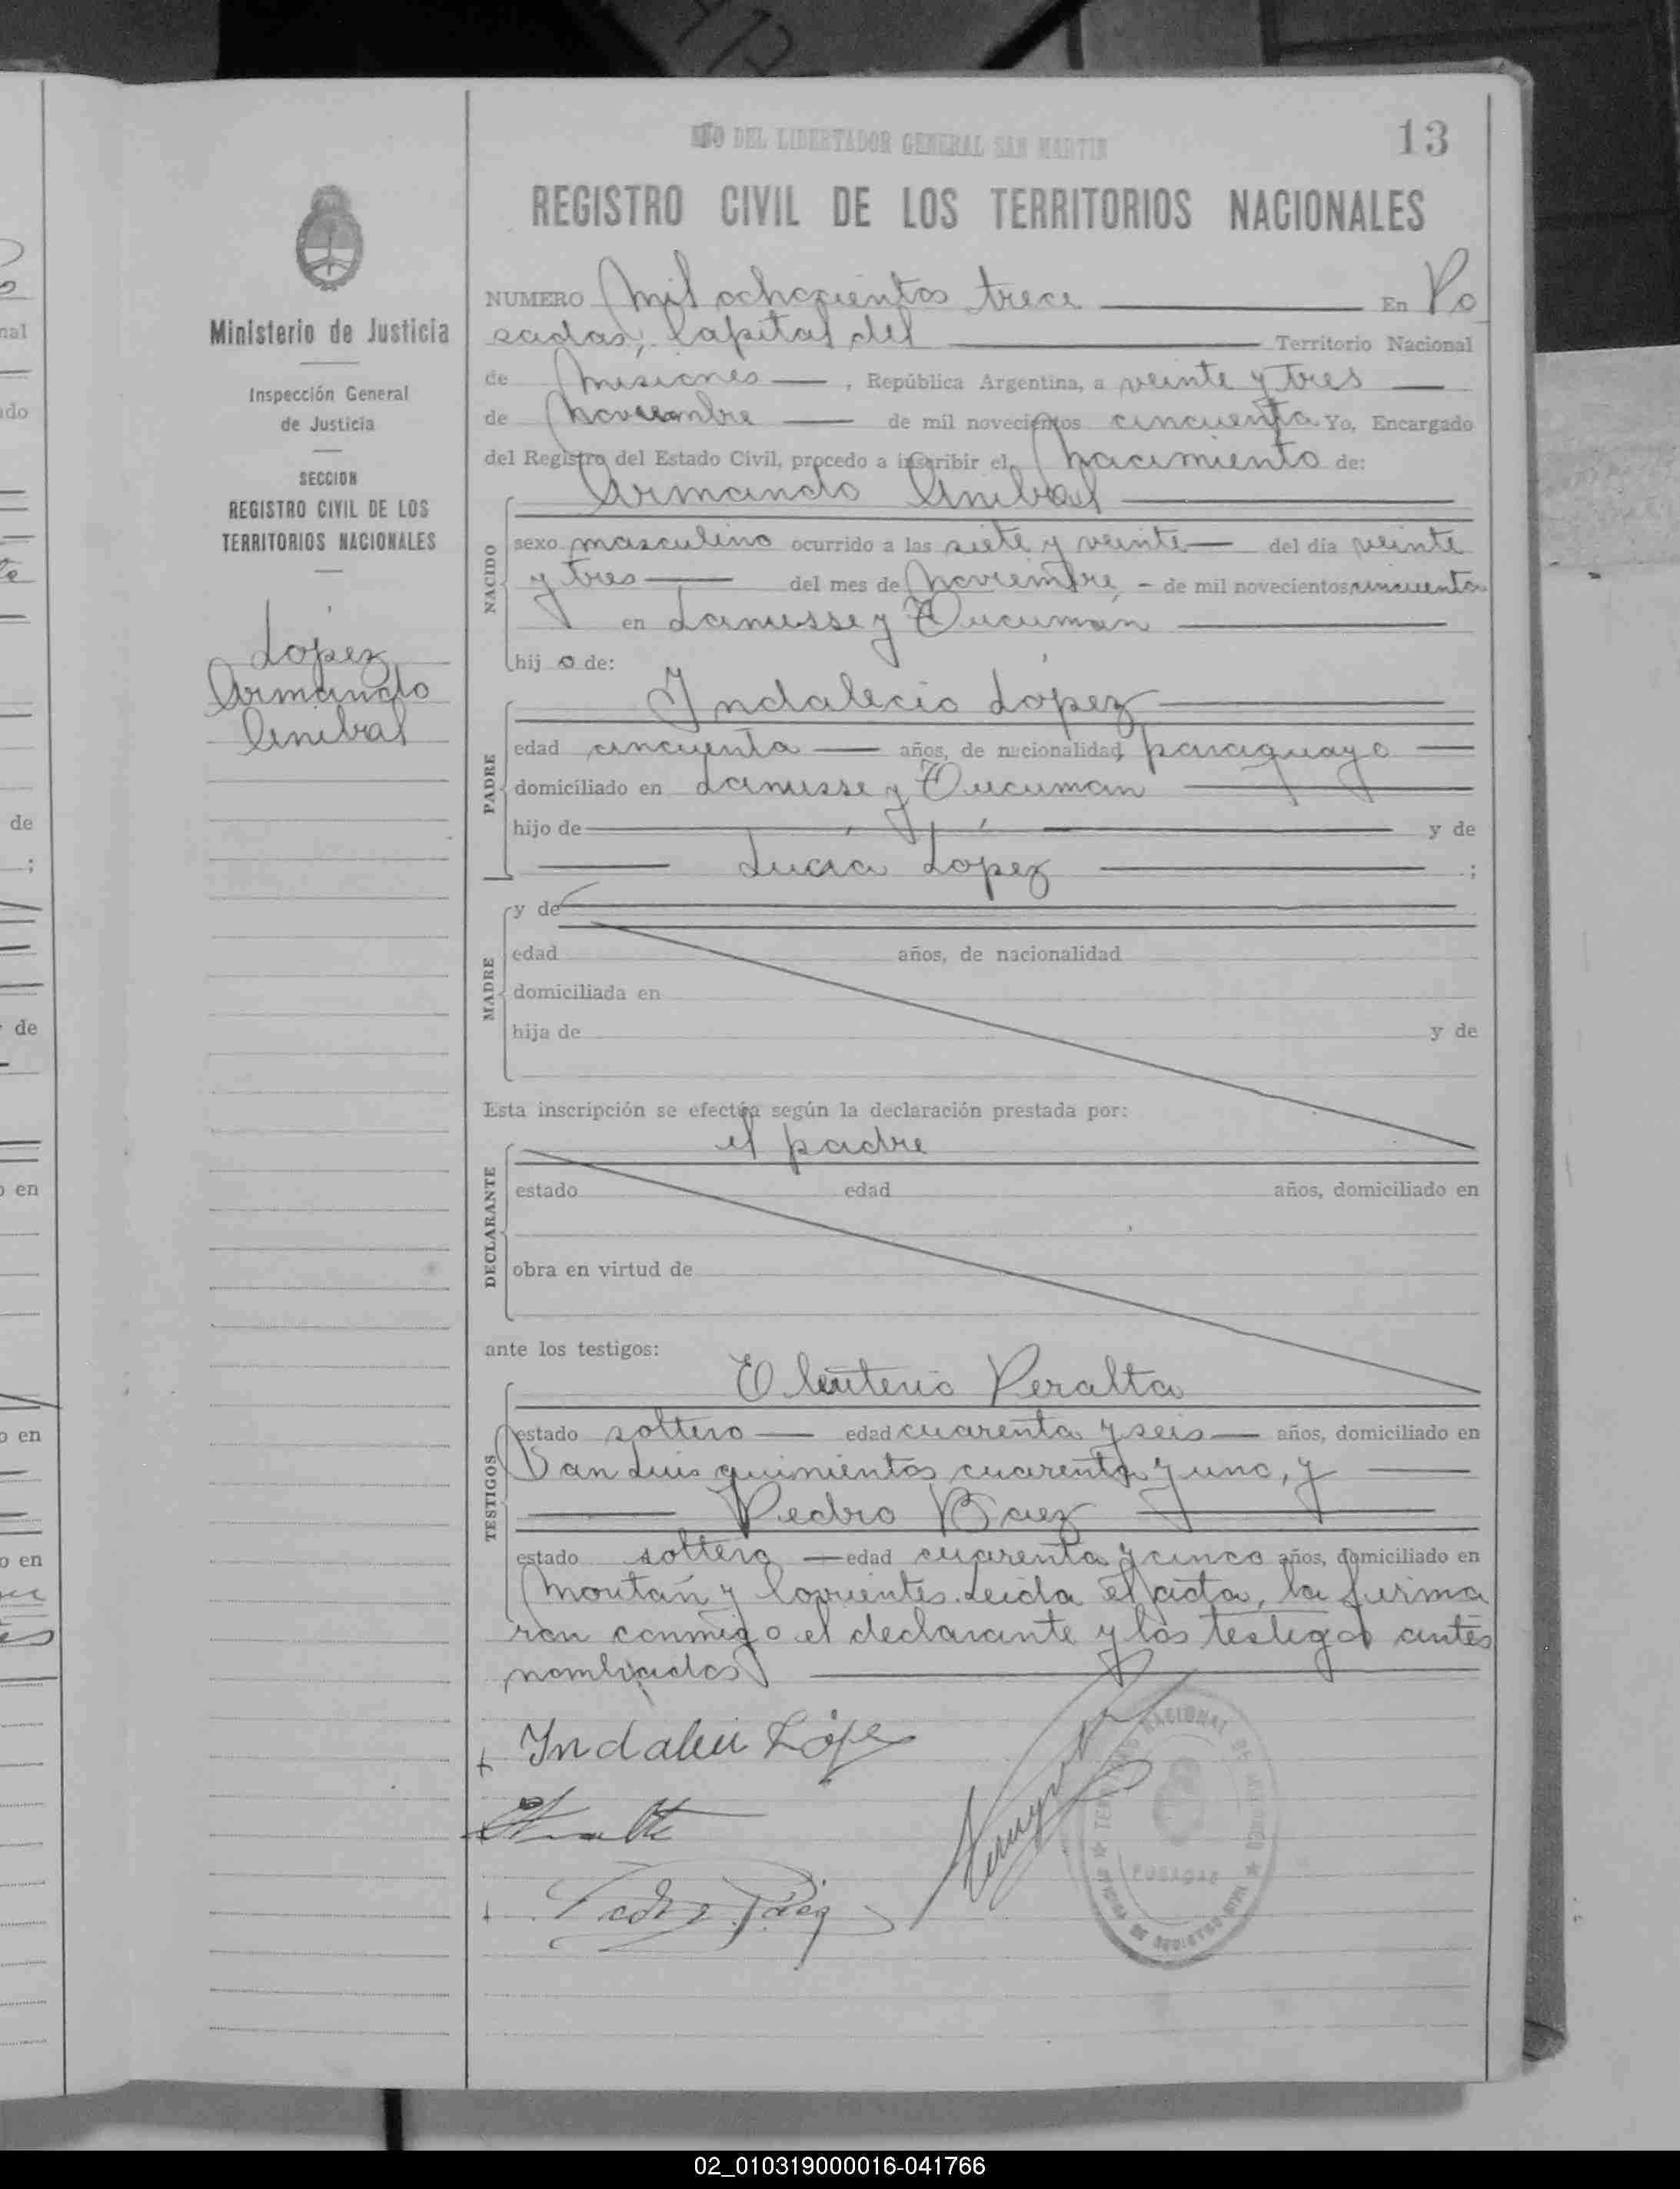 AÑO DEL LIBERTADOR GENERAL SAN MARTIN
13
REGISTRO CIVIL DE LOS TERRITORIOS NACIONALES
Ministerio de Justicia
Inspección General
de Justicia
SECCION
REGISTRO CIVIL DE LOS
TERRITORIOS NACIONALES
López
Armando
Anibal
NUMERO Mil ochocientos trece En Po
sadas, Capital del Territorio Nacional
de Misiones, República Argentina, a veinte y tres
de Noviembre de mil novecientos cincuenta Yo, Encargado
del Registro del Estado Civil, procedo a inscribir el Nacimiento de:
Armando Anibal
NACIDO
sexo masculino ocurrido a las siete y veinte del día veinte
y tres del mes de Noviembre - de mil novecientos cincuenta
en Lanusse y Tucumán
hij o de:
Indalecio López
PADRE
edad cincuenta años, de nacionalidad paraguayo
domiciliado en Lanusse y Tucumán
hijo de y de
Lucía López ;
MADRE
y de
edad años, de nacionalidad
domiciliada en
hija de y de
Esta inscripción se efectúa según la declaración prestada por:
el padre
DECLARANTE
estado edad años, domiciliado en
obra en virtud de
ante los testigos:
Eleuterio Peralta
TESTIGOS
estado soltero edad cuarenta y seis años, domiciliado en
San Luis quinientos cuarenta y uno, y
Pedro Baez
estado soltero edad cuarenta y cinco años, domiciliado en
Moután y Corrientes. Leída el acta, la firma
ron conmigo el declarante y los testigos antes
nombrados
Indaleci López
Pedro Báez
TERRITORIO NACIONAL DE MISIONES
POSADAS
OFICINA DE REGISTRO CIVIL
nal
ado
de
;
de
o en
o en
o en
02_010319000016-041766